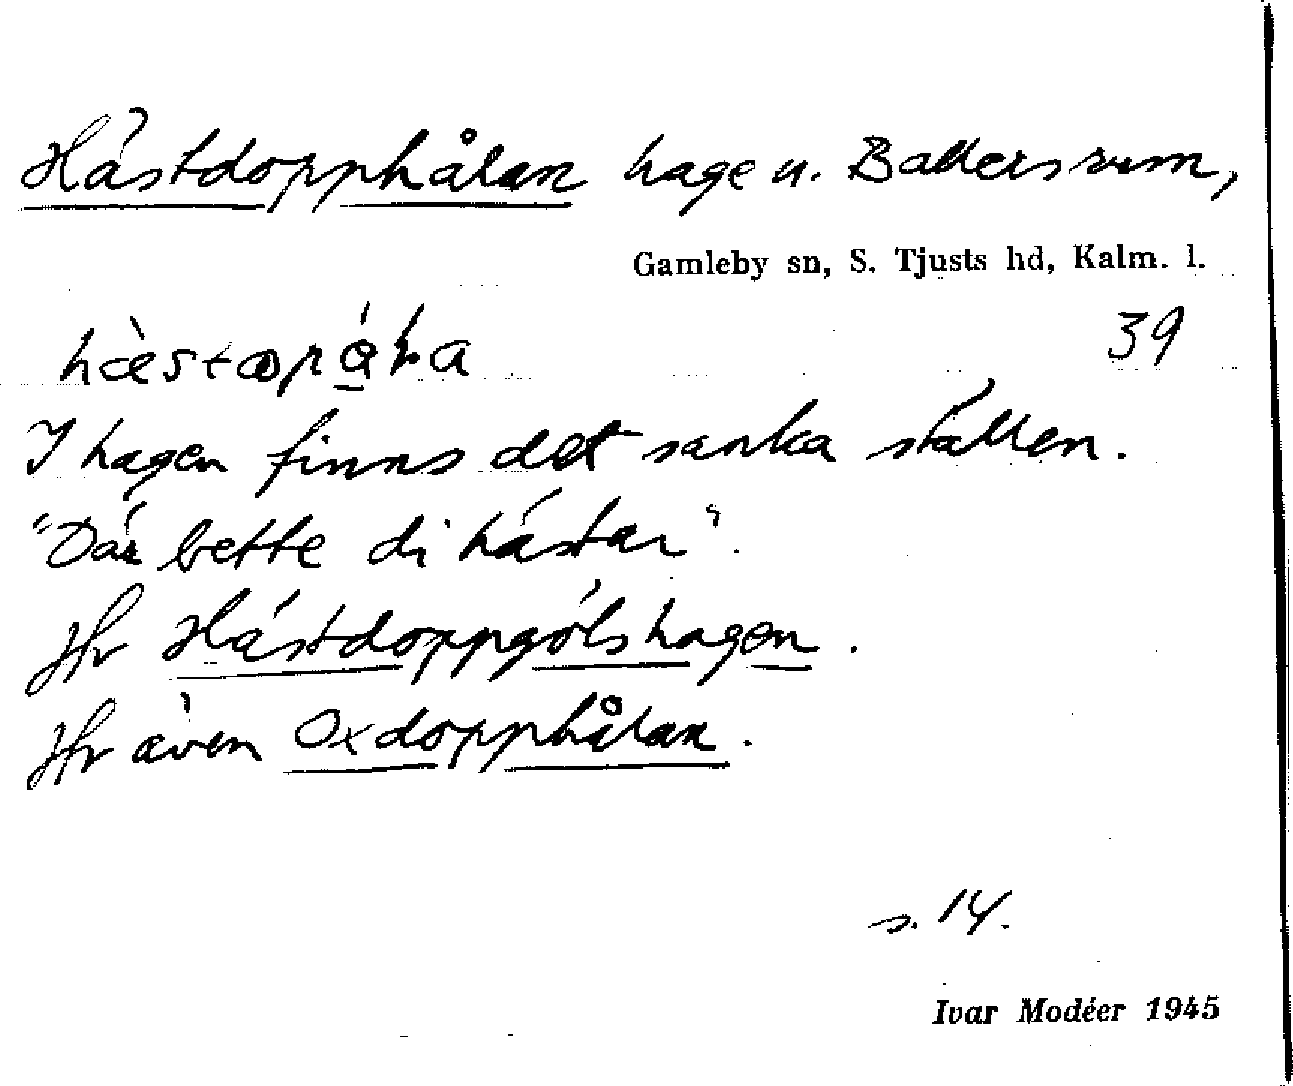 Hästdopphålan hage u. Ballersrum,
Gamleby sn, S. Tjusts hd, Kalm. l.
39
I hagen finns det sanka ställen.
"Där bette di hästar".
Jfr Hästdoppgölshagen.
Jfr även Oxdopphålan.
s. 14.
Ivar Modéer 1945